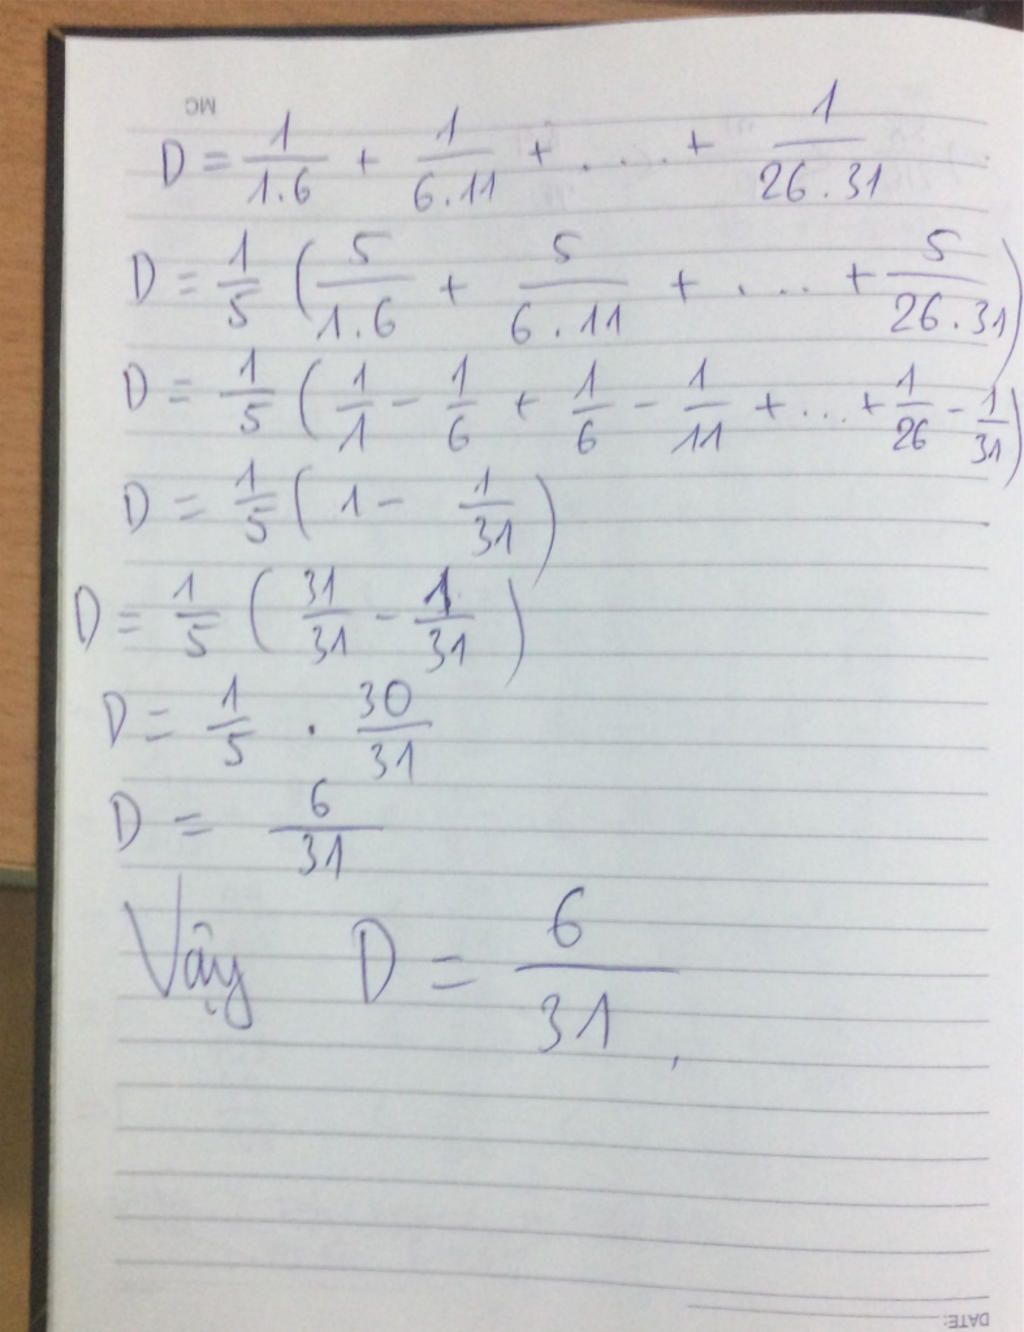 MC
D = 1/1.6 + 1/6.11 + .... + 1/26.31
D = 1/5 (5/1.6 + 5/6.11 + .... + 5/26.31)
D = 1/5 (1/1 - 1/6 + 1/6 - 1/11 + ... + 1/26 - 1/31)
D = 1/5 (1 - 1/31)
D = 1/5 (31/31 - 1/31)
D = 1/5 . 30/31
D = 6/31
Vậy D = 6/31,
DATE: